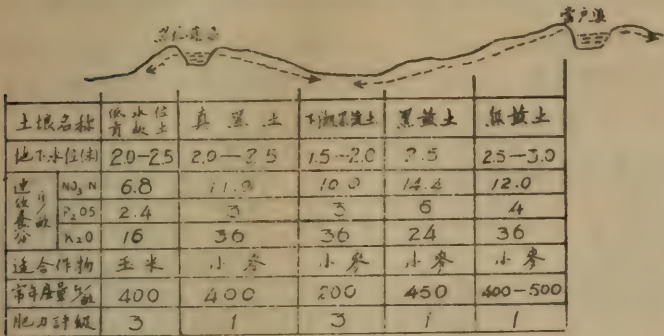 富户渠
土壤名称 低水位黄敏土 真黑土 下潮黑黄土 黑黄土 级黄土
地下水位(米) 2.0-2.5 2.0-2.5 1.5-2.0 2.5 2.5-3.0
速效养分 斤/亩 NO₃N 6.8 11.0 10.0 14.4 12.0
P₂O5 2.4 3 3 6 4
K₂O 16 36 36 24 36
适合作物 玉米 小麥 小麥 小麥 小麥
常年产量 斤/亩 400 400 200 450 400-500
肥力評級 3 1 3 1 1